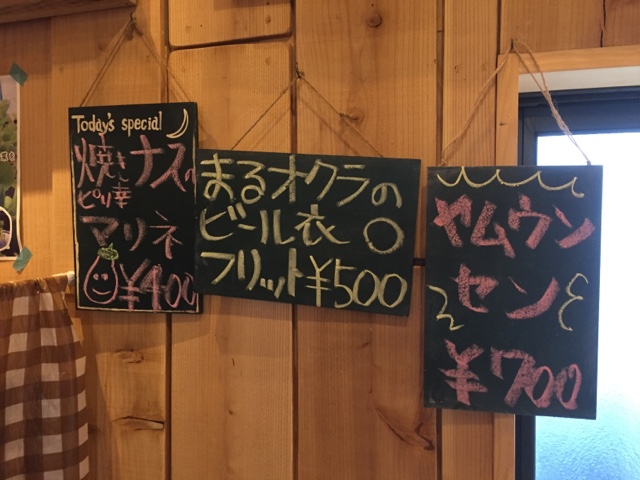 Today's special
焼きナスの
ピリ辛
マリネ
¥400
まるオクラの
ビール衣
フリット¥500
ヤムウン
セン
¥700